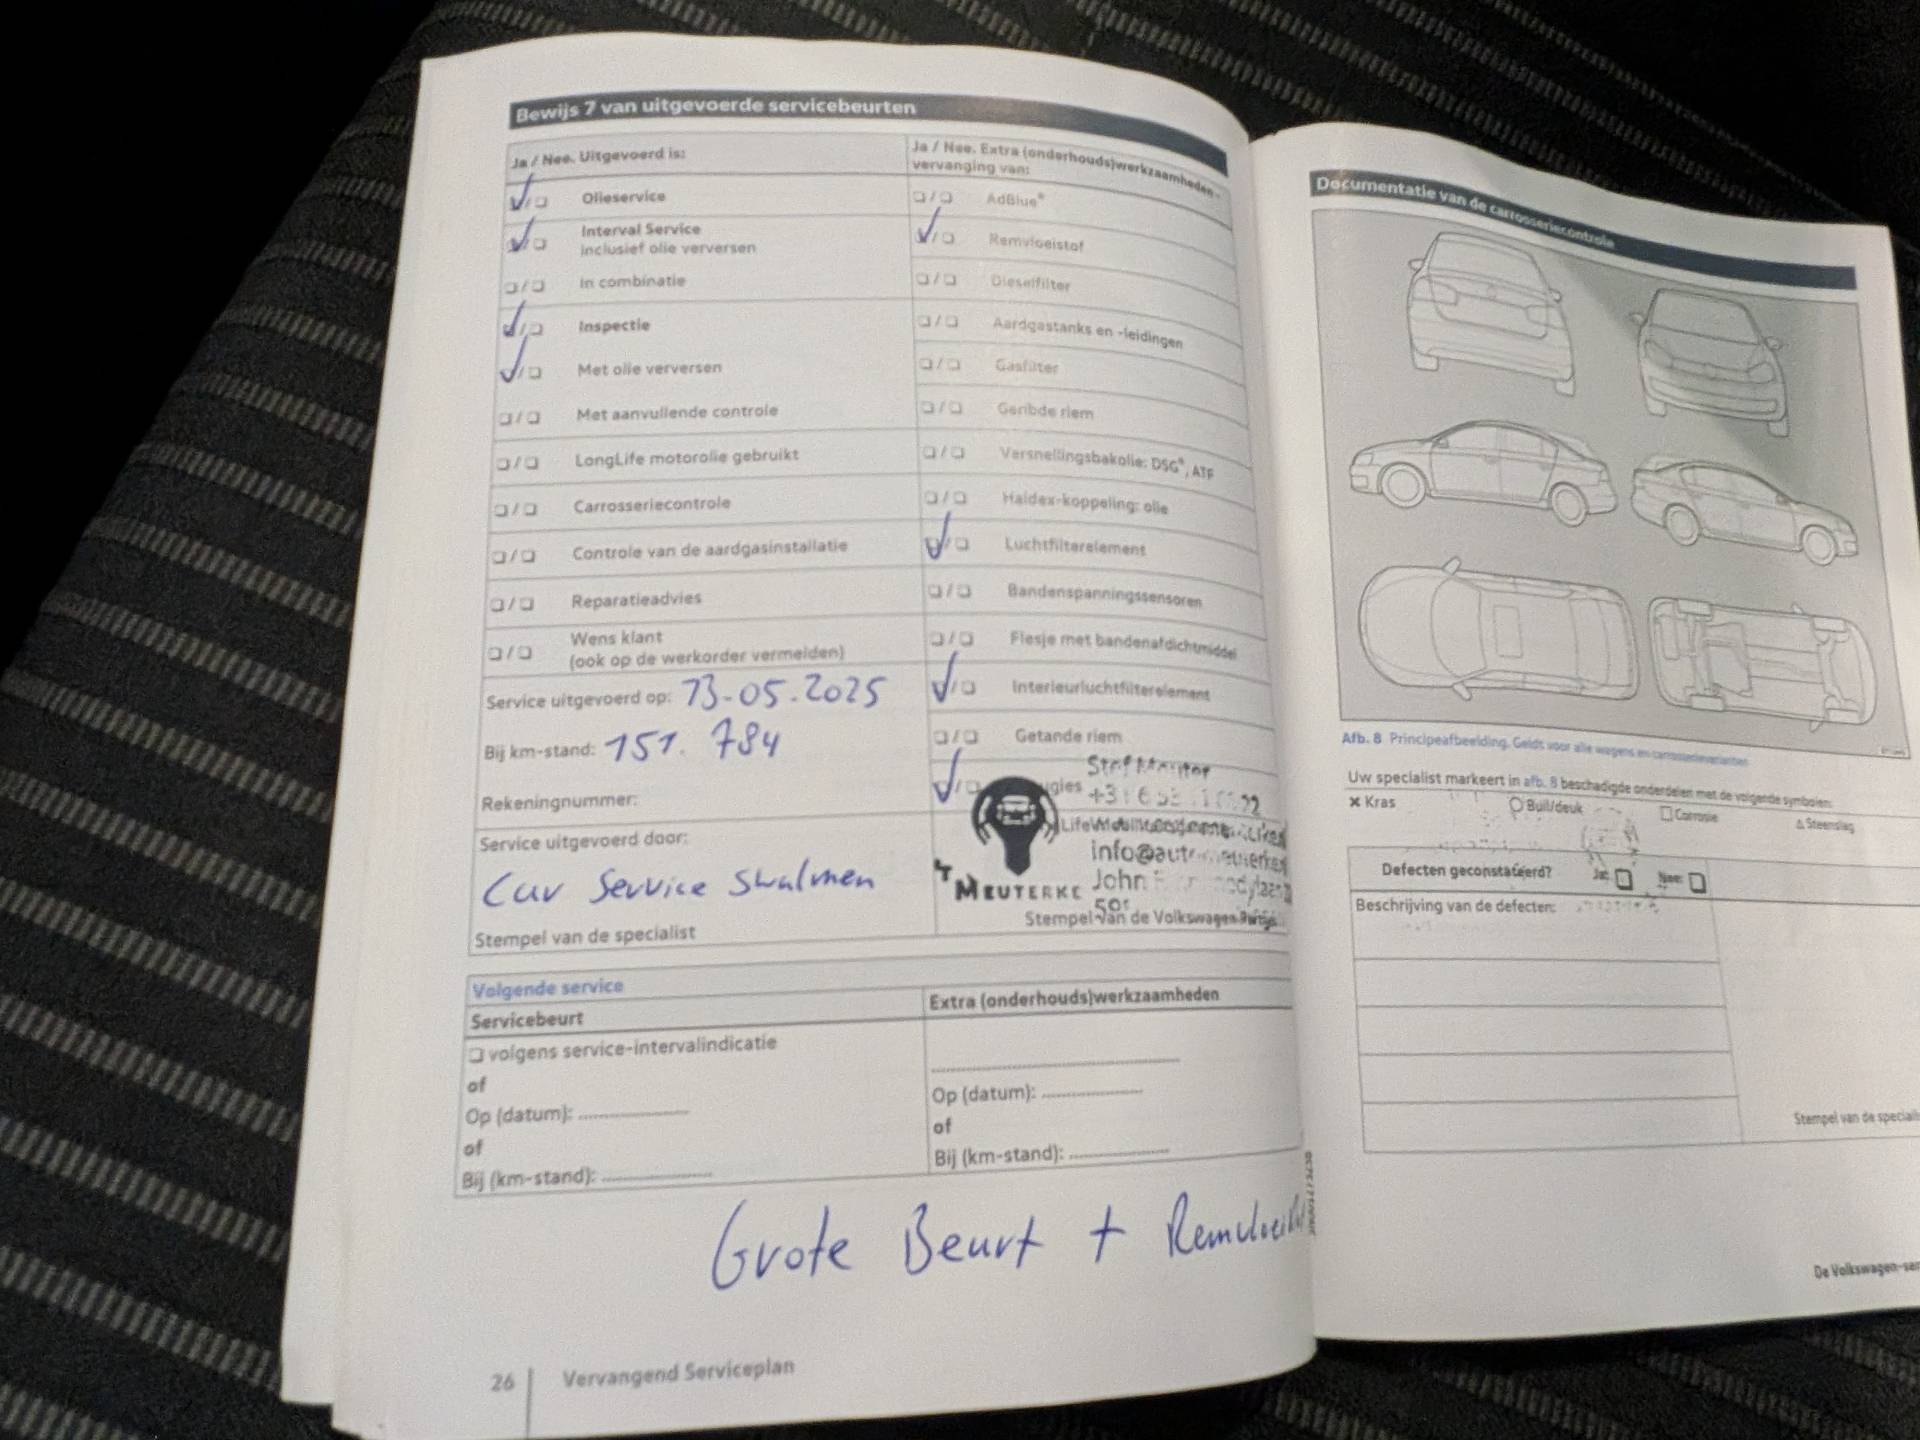 Bewijs 7 van uitgevoerde servicebeurten
Ja / Nee. Uitgevoerd is:
Olieservice
Interval Service
inclusief olie verversen
In combinatie
Inspectie
Met olie verversen
Met aanvullende controle
LongLife motorolie gebruikt
Carrosseriecontrole
Controle van de aardgasinstallatie
Reparatieadvies
Wens klant
(ook op de werkorder vermelden)
Service uitgevoerd op: 13-05-2025
Bij km-stand: 151.784
Rekeningnummer:
Service uitgevoerd door:
Car Service Swalmen
Stempel van de specialist
Ja / Nee. Extra (onderhouds)werkzaamheden -
vervanging van:
AdBlue®
Remvloeistof
Dieselfilter
Aardgastanks en -leidingen
Gasfilter
Geribde riem
Versnellingsbakolie: DSG®, ATF
Haldex-koppeling: olie
Luchtfilterelement
Bandenspanningssensoren
Flesje met bandenafdichtmiddel
Interieurluchtfilterelement
Getande riem
'T MEUTERKE
info@
John
Stempel van de Volkswagen
Volgende service
Servicebeurt
volgens service-intervalindicatie
of
Op (datum):
of
Bij (km-stand):
Extra (onderhouds)werkzaamheden
Op (datum):
of
Bij (km-stand):
Grote Beurt +
26 Vervangend Serviceplan
Documentatie van de carrosseriecontrole
Afb. 8 Principeafbeelding. Geldt voor alle wagens en carrosserievarianten
Uw specialist markeert in afb. 8 beschadigde onderdelen met de volgende symbolen:
× Kras Buil/deuk Corrosie Steenslag
Defecten geconstateerd? Ja: Nee:
Beschrijving van de defecten:
Stempel van de
De